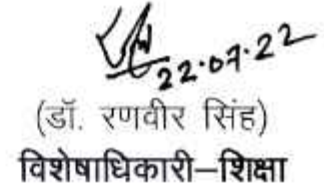 22.07.22
(डॉ. रणवीर सिंह)
विशेषाधिकारी–शिक्षा